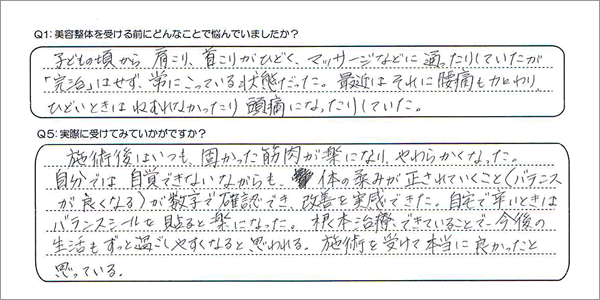 Q1:美容整体を受ける前にどんなことで悩んでいましたか?
子どもの頃から肩こり、首こりがひどく、マッサージなどに通ったりしていたが
「完治」はせず、常にこっている状態だった。最近はそれに腰痛も加わり、
ひどいときはねむれなかったり頭痛になったりしていた。
Q5:実際に受けてみていかがですか?
施術後はいつも、固かった筋肉が楽になり、やわらかくなった。
自分では自覚できないながらも、体の歪みが正されていくこと(バランス
が良くなる)が数字で確認でき、改善を実感できた。自宅で辛いときは
バランスシールを貼ると楽になった。根本治療できていることで今後の
生活もずっと過ごしやすくなると思われる。施術を受けて本当に良かったと
思っている。